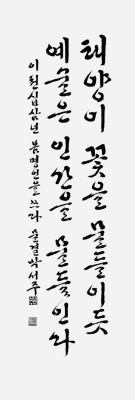 태양이 꽃을 물들이듯
예술은 인간을 물들인다
이천십삼년 봄명언을쓰다 순결 박서주